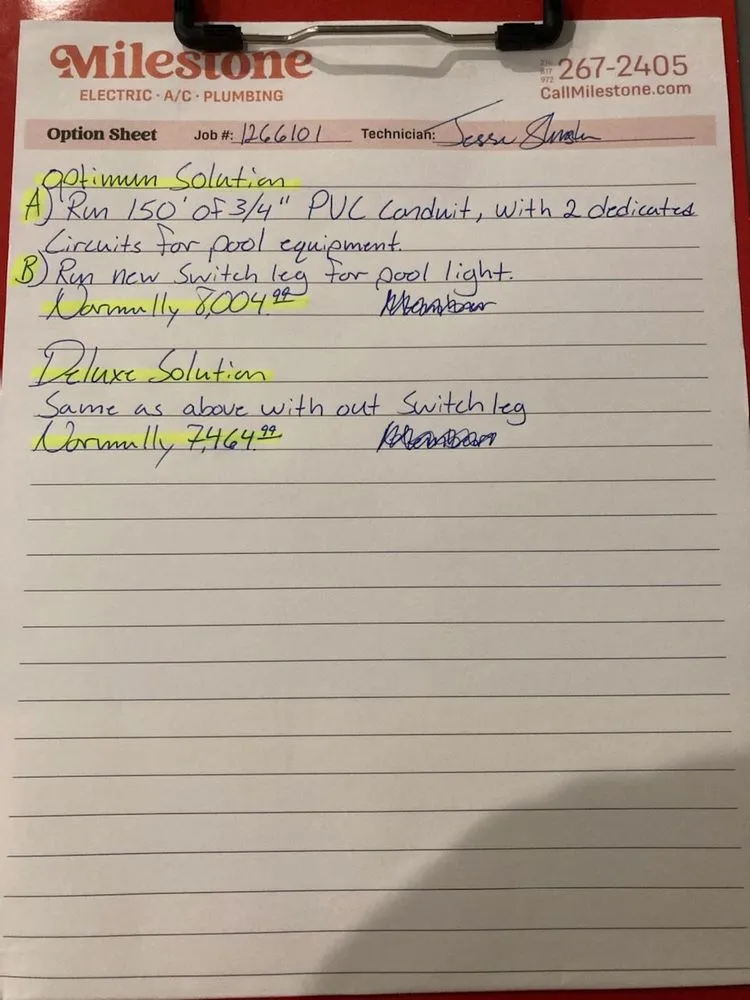 Milestone
ELECTRIC · A/C · PLUMBING
214 817 972 267-2405
CallMilestone.com
Option Sheet Job #: 1266101 Technician: Jesse
Optimum Solution
A) Run 150' of 3/4" PVC Conduit, with 2 dedicated
Circuits for pool equipment.
B) Run new Switch leg for pool light.
Normally 8,004.99
Deluxe Solution
Same as above with out Switch leg
Normally 7,464.99